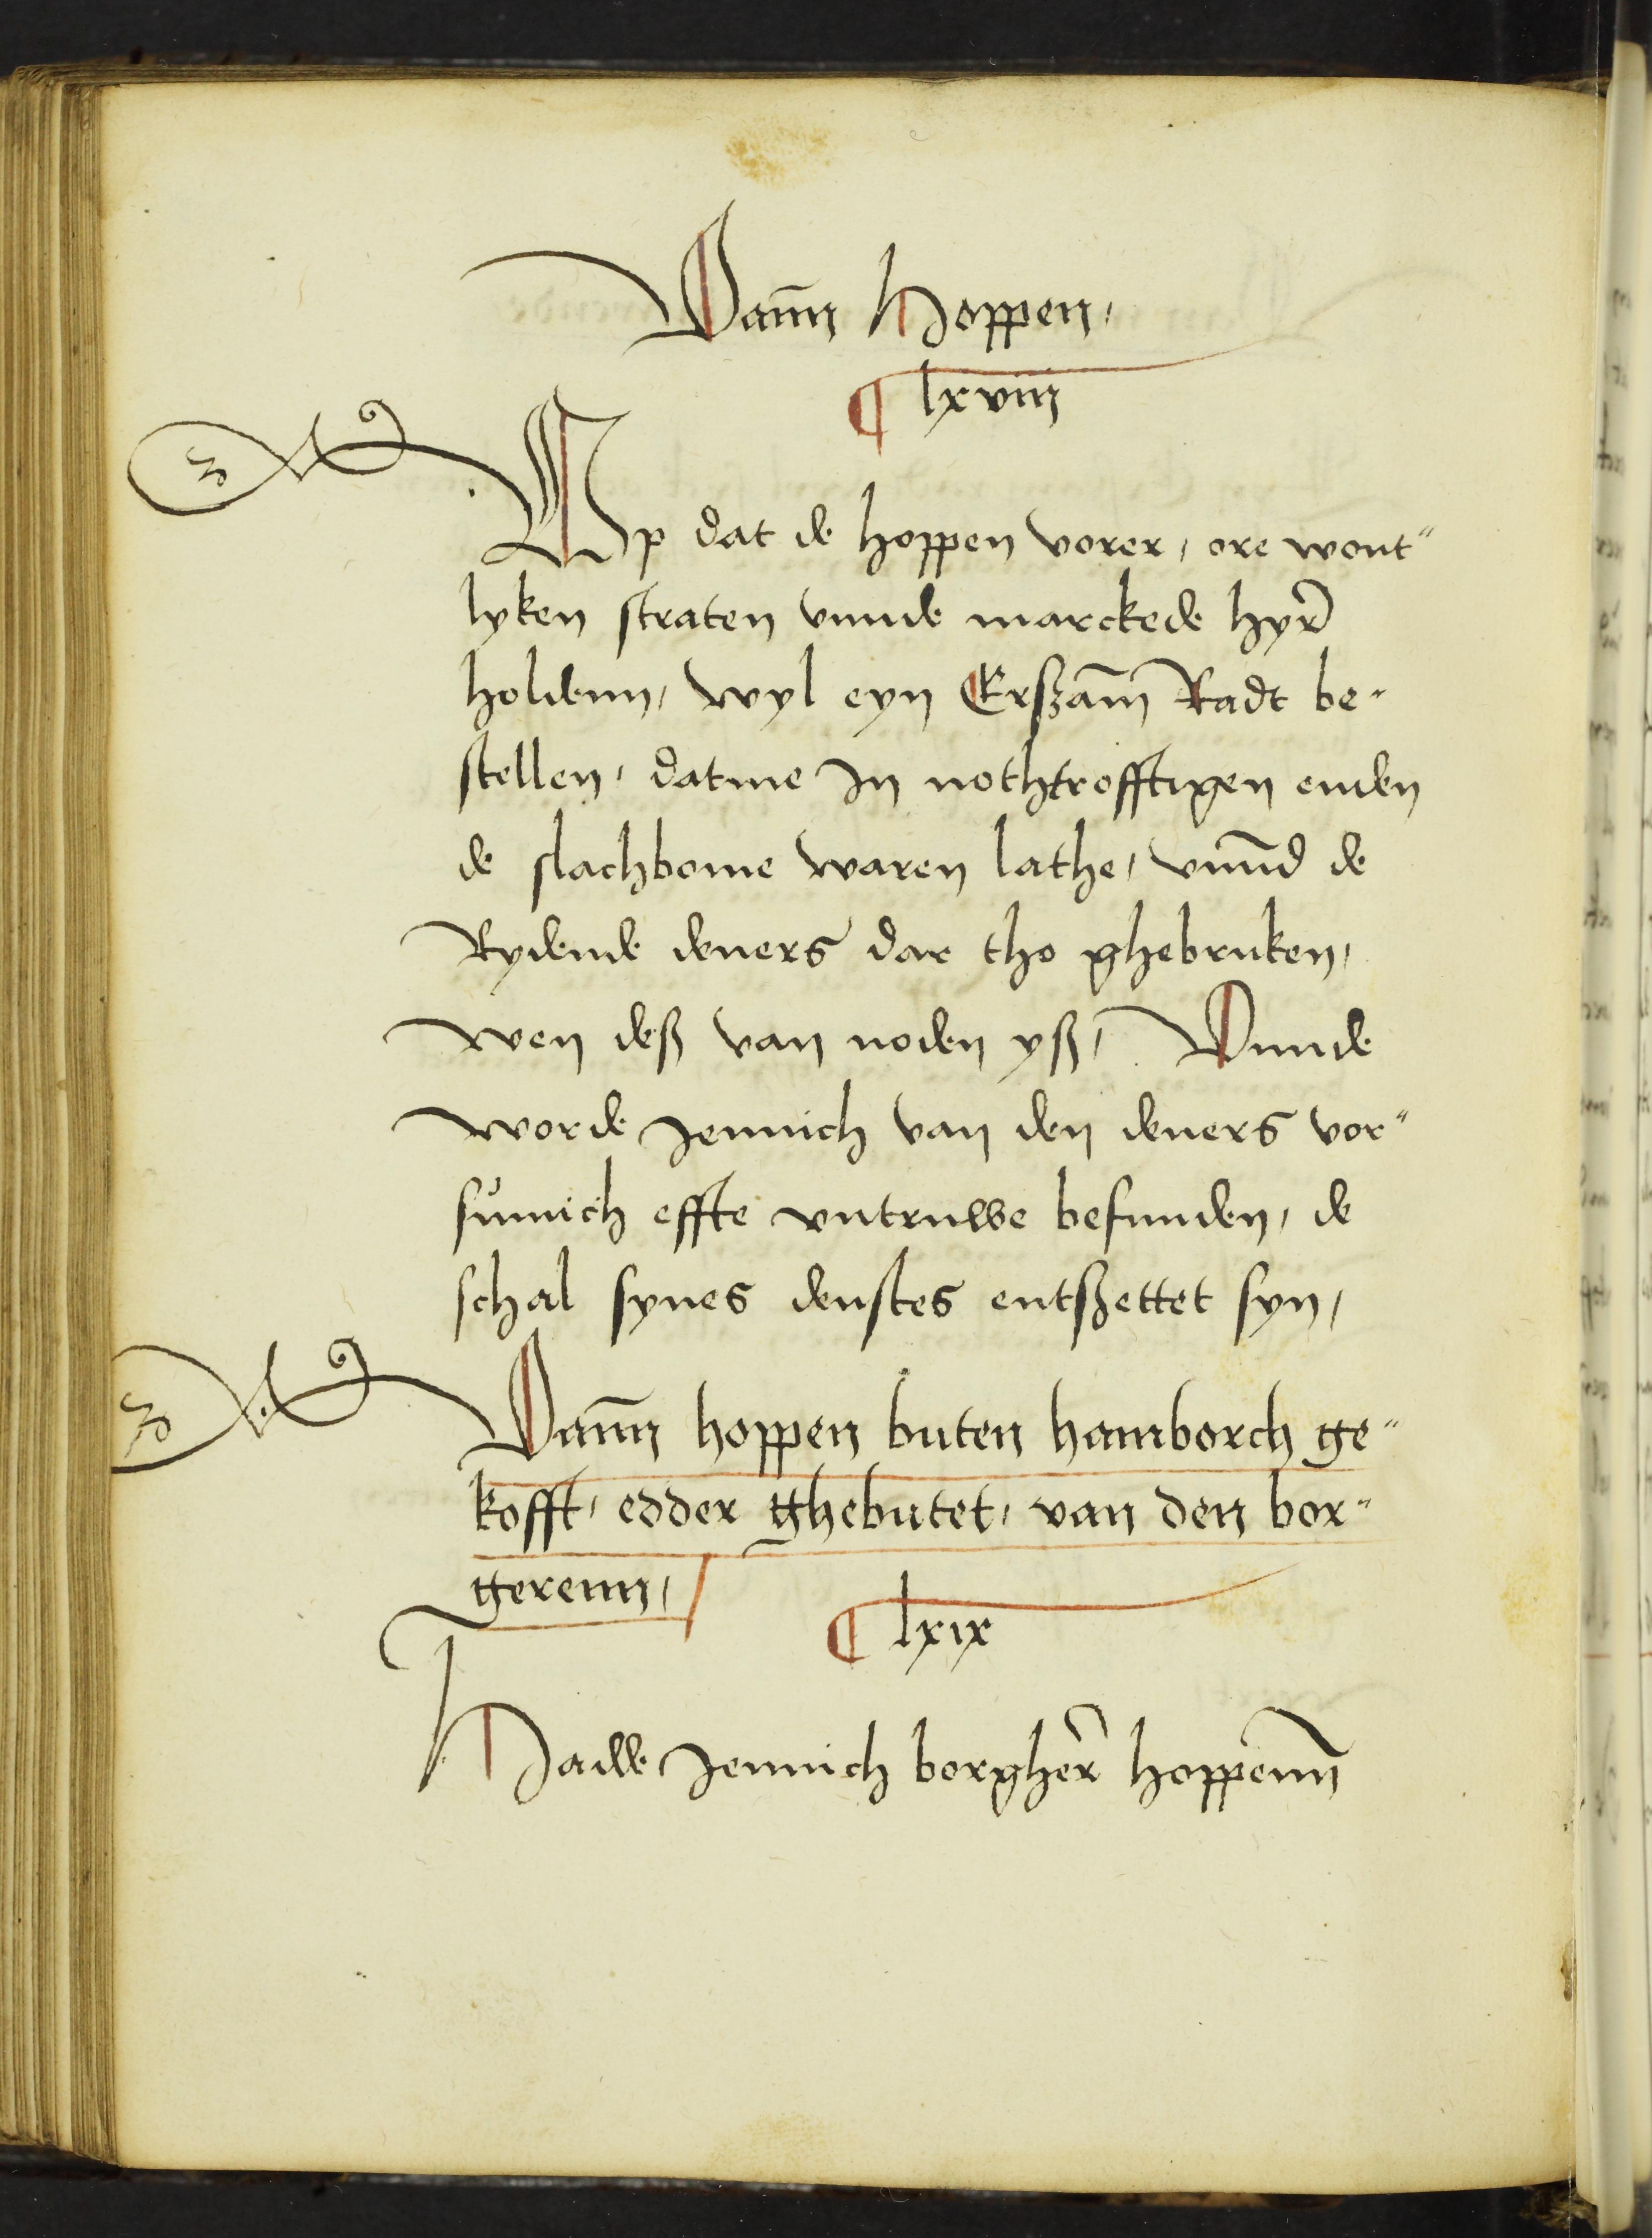 Vann Hoppen,
¶ lxviii
Up dat de hoppen vorer, ore wont-
lyken straten vnnde marckede hyr
holdenn, wyl eyn Erßam Radt be-
stellen, datme Jn nothtrofftigen enden
de slachbome waren lathe, vnnd de
Rydende deners dar tho ghebruken,
wen deß van noden yß, Vnnde
worde Jennich van den deners vor-
sůmich effte vntruwe befunden, de
schal synes denstes entßettet syn,
Vann hoppen buten hamborch ge-
kofft, edder ghebutet, van den bor-
gerenn,
¶ lxix
Hadde Jennich borgher hoppenn